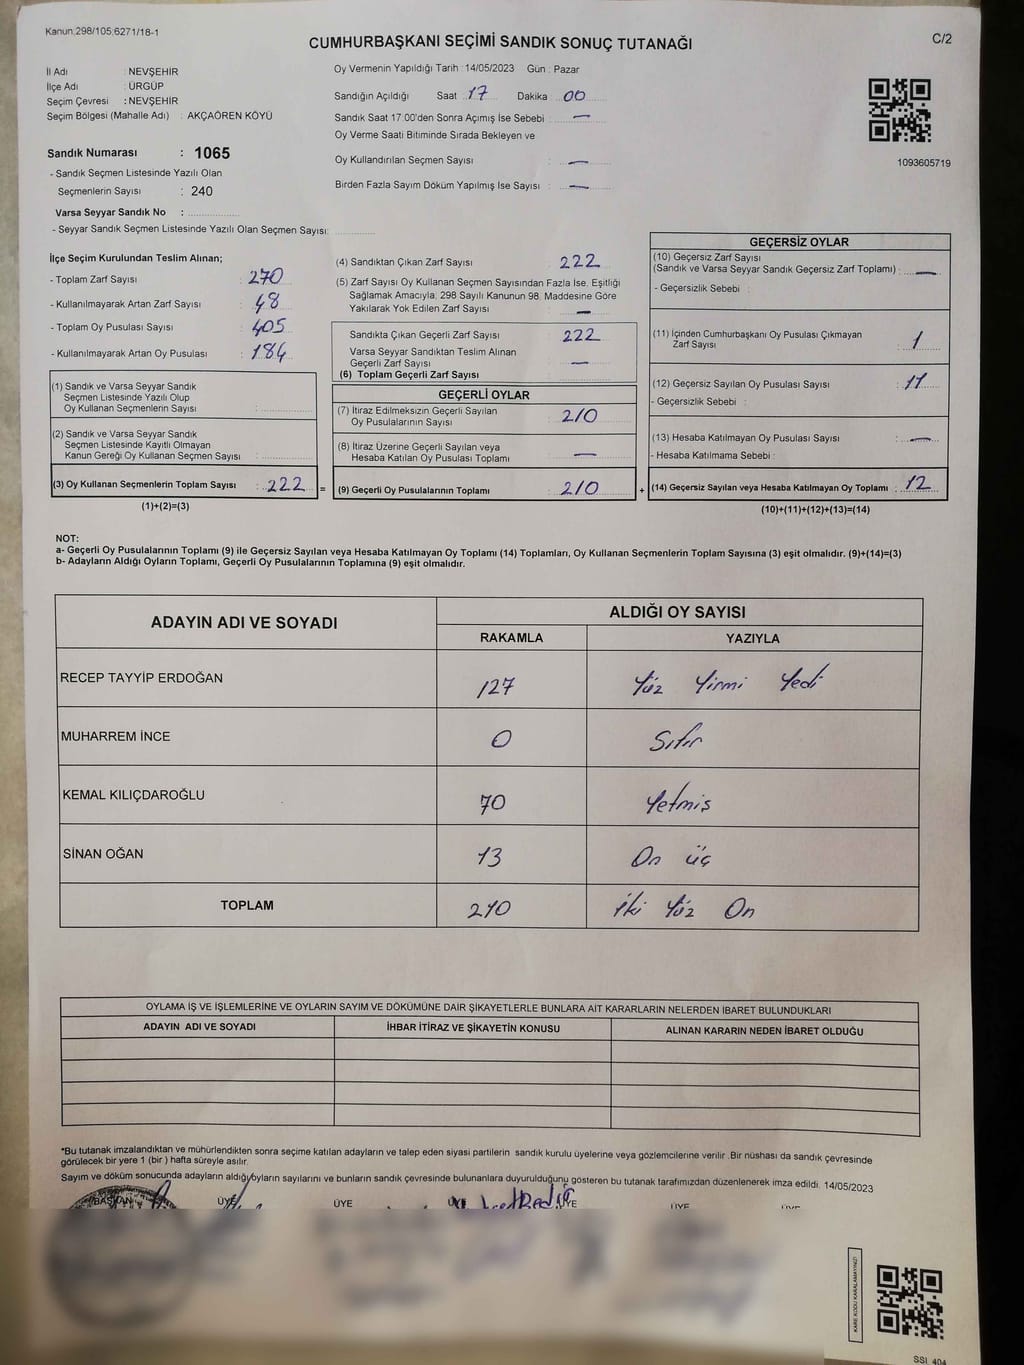 Kanun:298/105;6271/18-1
CUMHURBAŞKANI SEÇİMİ SANDIK SONUÇ TUTANAĞI
C/2
İl Adı : NEVŞEHİR
İlçe Adı : ÜRGÜP
Seçim Çevresi : NEVŞEHİR
Seçim Bölgesi (Mahalle Adı) : AKÇAÖREN KÖYÜ
Sandık Numarası : 1065
- Sandık Seçmen Listesinde Yazılı Olan
Seçmenlerin Sayısı : 240
Varsa Seyyar Sandık No :
- Seyyar Sandık Seçmen Listesinde Yazılı Olan Seçmen Sayısı:
Oy Vermenin Yapıldığı Tarih : 14/05/2023 Gün : Pazar
Sandığın Açıldığı Saat 17 Dakika 00
Sandık Saat 17:00'den Sonra Açımış İse Sebebi : —
Oy Verme Saati Bitiminde Sırada Bekleyen ve
Oy Kullandırılan Seçmen Sayısı : —
Birden Fazla Sayım Döküm Yapılmış İse Sayısı : —
1093605719
İlçe Seçim Kurulundan Teslim Alınan;
- Toplam Zarf Sayısı : 270
- Kullanılmayarak Artan Zarf Sayısı : 48
- Toplam Oy Pusulası Sayısı : 405
- Kullanılmayarak Artan Oy Pusulası : 184
(1) Sandık ve Varsa Seyyar Sandık
Seçmen Listesinde Yazılı Olup
Oy Kullanan Seçmenlerin Sayısı :
(2) Sandık ve Varsa Seyyar Sandık
Seçmen Listesinde Kayıtlı Olmayan
Kanun Gereği Oy Kullanan Seçmen Sayısı :
(3) Oy Kullanan Seçmenlerin Toplam Sayısı : 222 =
(1)+(2)=(3)
(4) Sandıktan Çıkan Zarf Sayısı : 222
(5) Zarf Sayısı Oy Kullanan Seçmen Sayısından Fazla İse, Eşitliği
Sağlamak Amacıyla; 298 Sayılı Kanunun 98. Maddesine Göre
Yakılarak Yok Edilen Zarf Sayısı : —
Sandıkta Çıkan Geçerli Zarf Sayısı : 222
Varsa Seyyar Sandıktan Teslim Alınan
Geçerli Zarf Sayısı : —
(6) Toplam Geçerli Zarf Sayısı :
GEÇERLİ OYLAR
(7) İtiraz Edilmeksizin Geçerli Sayılan
Oy Pusulalarının Sayısı : 210
(8) İtiraz Üzerine Geçerli Sayılan veya
Hesaba Katılan Oy Pusulası Toplamı : —
(9) Geçerli Oy Pusulalarının Toplamı : 210 +
GEÇERSİZ OYLAR
(10) Geçersiz Zarf Sayısı
(Sandık ve Varsa Seyyar Sandık Geçersiz Zarf Toplamı) : —
- Geçersizlik Sebebi :
(11) İçinden Cumhurbaşkanı Oy Pusulası Çıkmayan
Zarf Sayısı : 1
(12) Geçersiz Sayılan Oy Pusulası Sayısı : 11
- Geçersizlik Sebebi :
(13) Hesaba Katılmayan Oy Pusulası Sayısı : —
- Hesaba Katılmama Sebebi :
(14) Geçersiz Sayılan veya Hesaba Katılmayan Oy Toplamı : 12
(10)+(11)+(12)+(13)=(14)
NOT:
a- Geçerli Oy Pusulalarının Toplamı (9) ile Geçersiz Sayılan veya Hesaba Katılmayan Oy Toplamı (14) Toplamları, Oy Kullanan Seçmenlerin Toplam Sayısına (3) eşit olmalıdır. (9)+(14)=(3)
b- Adayların Aldığı Oyların Toplamı, Geçerli Oy Pusulalarının Toplamına (9) eşit olmalıdır.
ADAYIN ADI VE SOYADI
ALDIĞI OY SAYISI
RAKAMLA YAZIYLA
RECEP TAYYİP ERDOĞAN 127 Yüz Yirmi Yedi
MUHARREM İNCE 0 Sıfır
KEMAL KILIÇDAROĞLU 70 Yetmiş
SİNAN OĞAN 13 On üç
TOPLAM 210 İki Yüz On
OYLAMA İŞ VE İŞLEMLERİNE VE OYLARIN SAYIM VE DÖKÜMÜNE DAİR ŞİKAYETLERLE BUNLARA AİT KARARLARIN NELERDEN İBARET BULUNDUKLARI
ADAYIN ADI VE SOYADI İHBAR İTİRAZ VE ŞİKAYETİN KONUSU ALINAN KARARIN NEDEN İBARET OLDUĞU
*Bu tutanak imzalandıktan ve mühürlendikten sonra seçime katılan adayların ve talep eden siyasi partilerin sandık kurulu üyelerine veya gözlemcilerine verilir .Bir nüshası da sandık çevresinde
görülecek bir yere 1 (bir ) hafta süreyle asılır.
Sayım ve döküm sonucunda adayların aldığı oyların sayılarını ve bunların sandık çevresinde bulunanlara duyurulduğunu gösteren bu tutanak tarafımızdan düzenlenerek imza edildi. 14/05/2023
BAŞKAN ÜYE ÜYE ÜYE ÜYE ÜYE ÜYE
KARE KODU KARALAMAYINIZ!
SSI 404